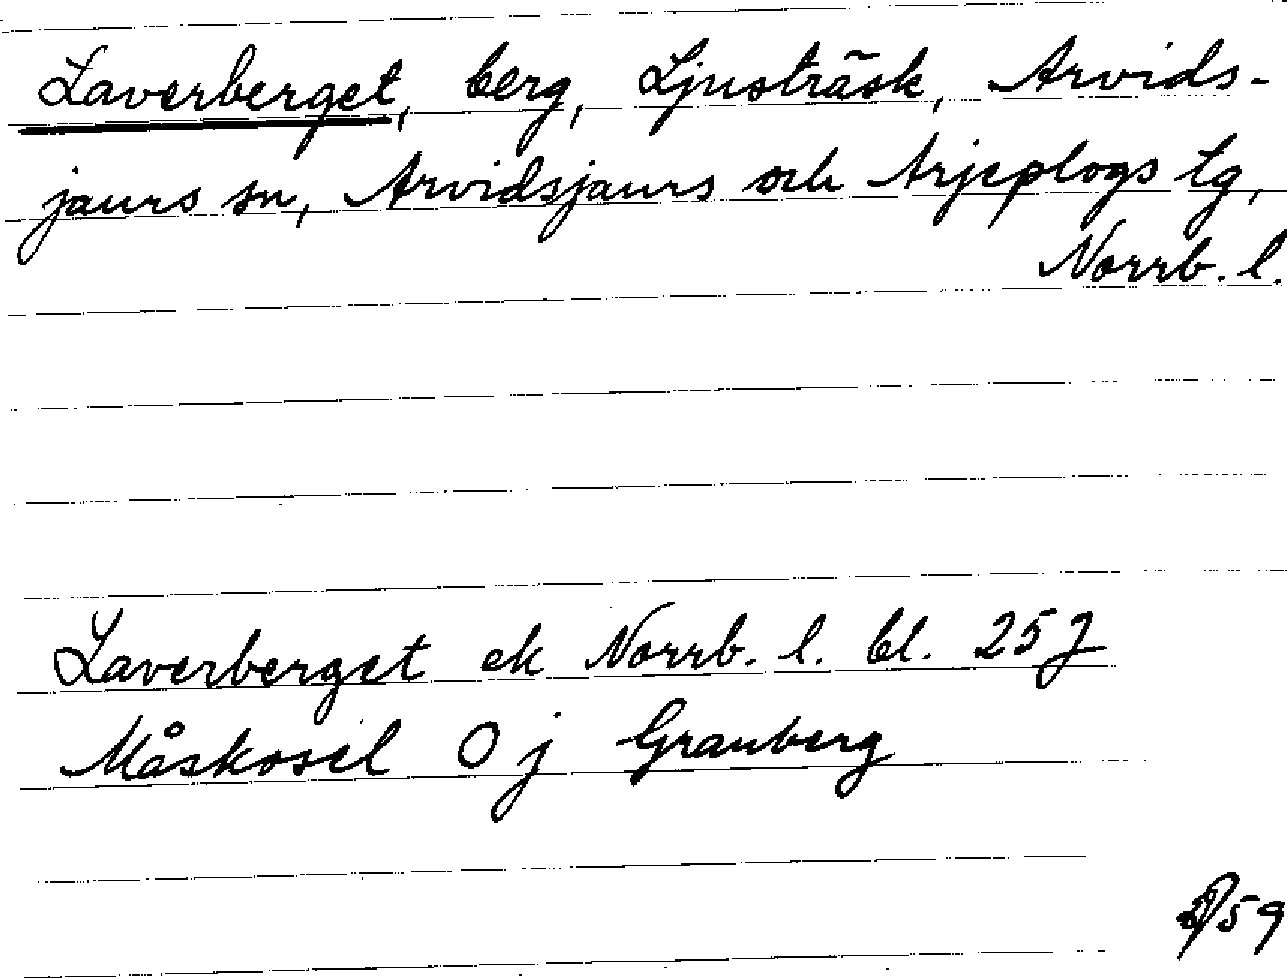 Laverberget, berg, Ljusträsk, Arvids-
jaurs sn, Arvidsjaurs och Arjeplogs tg,
Norrb. l.
Laverberget ek Norrb. l. bl. 25J
Måskosel 0 j Granberg
59